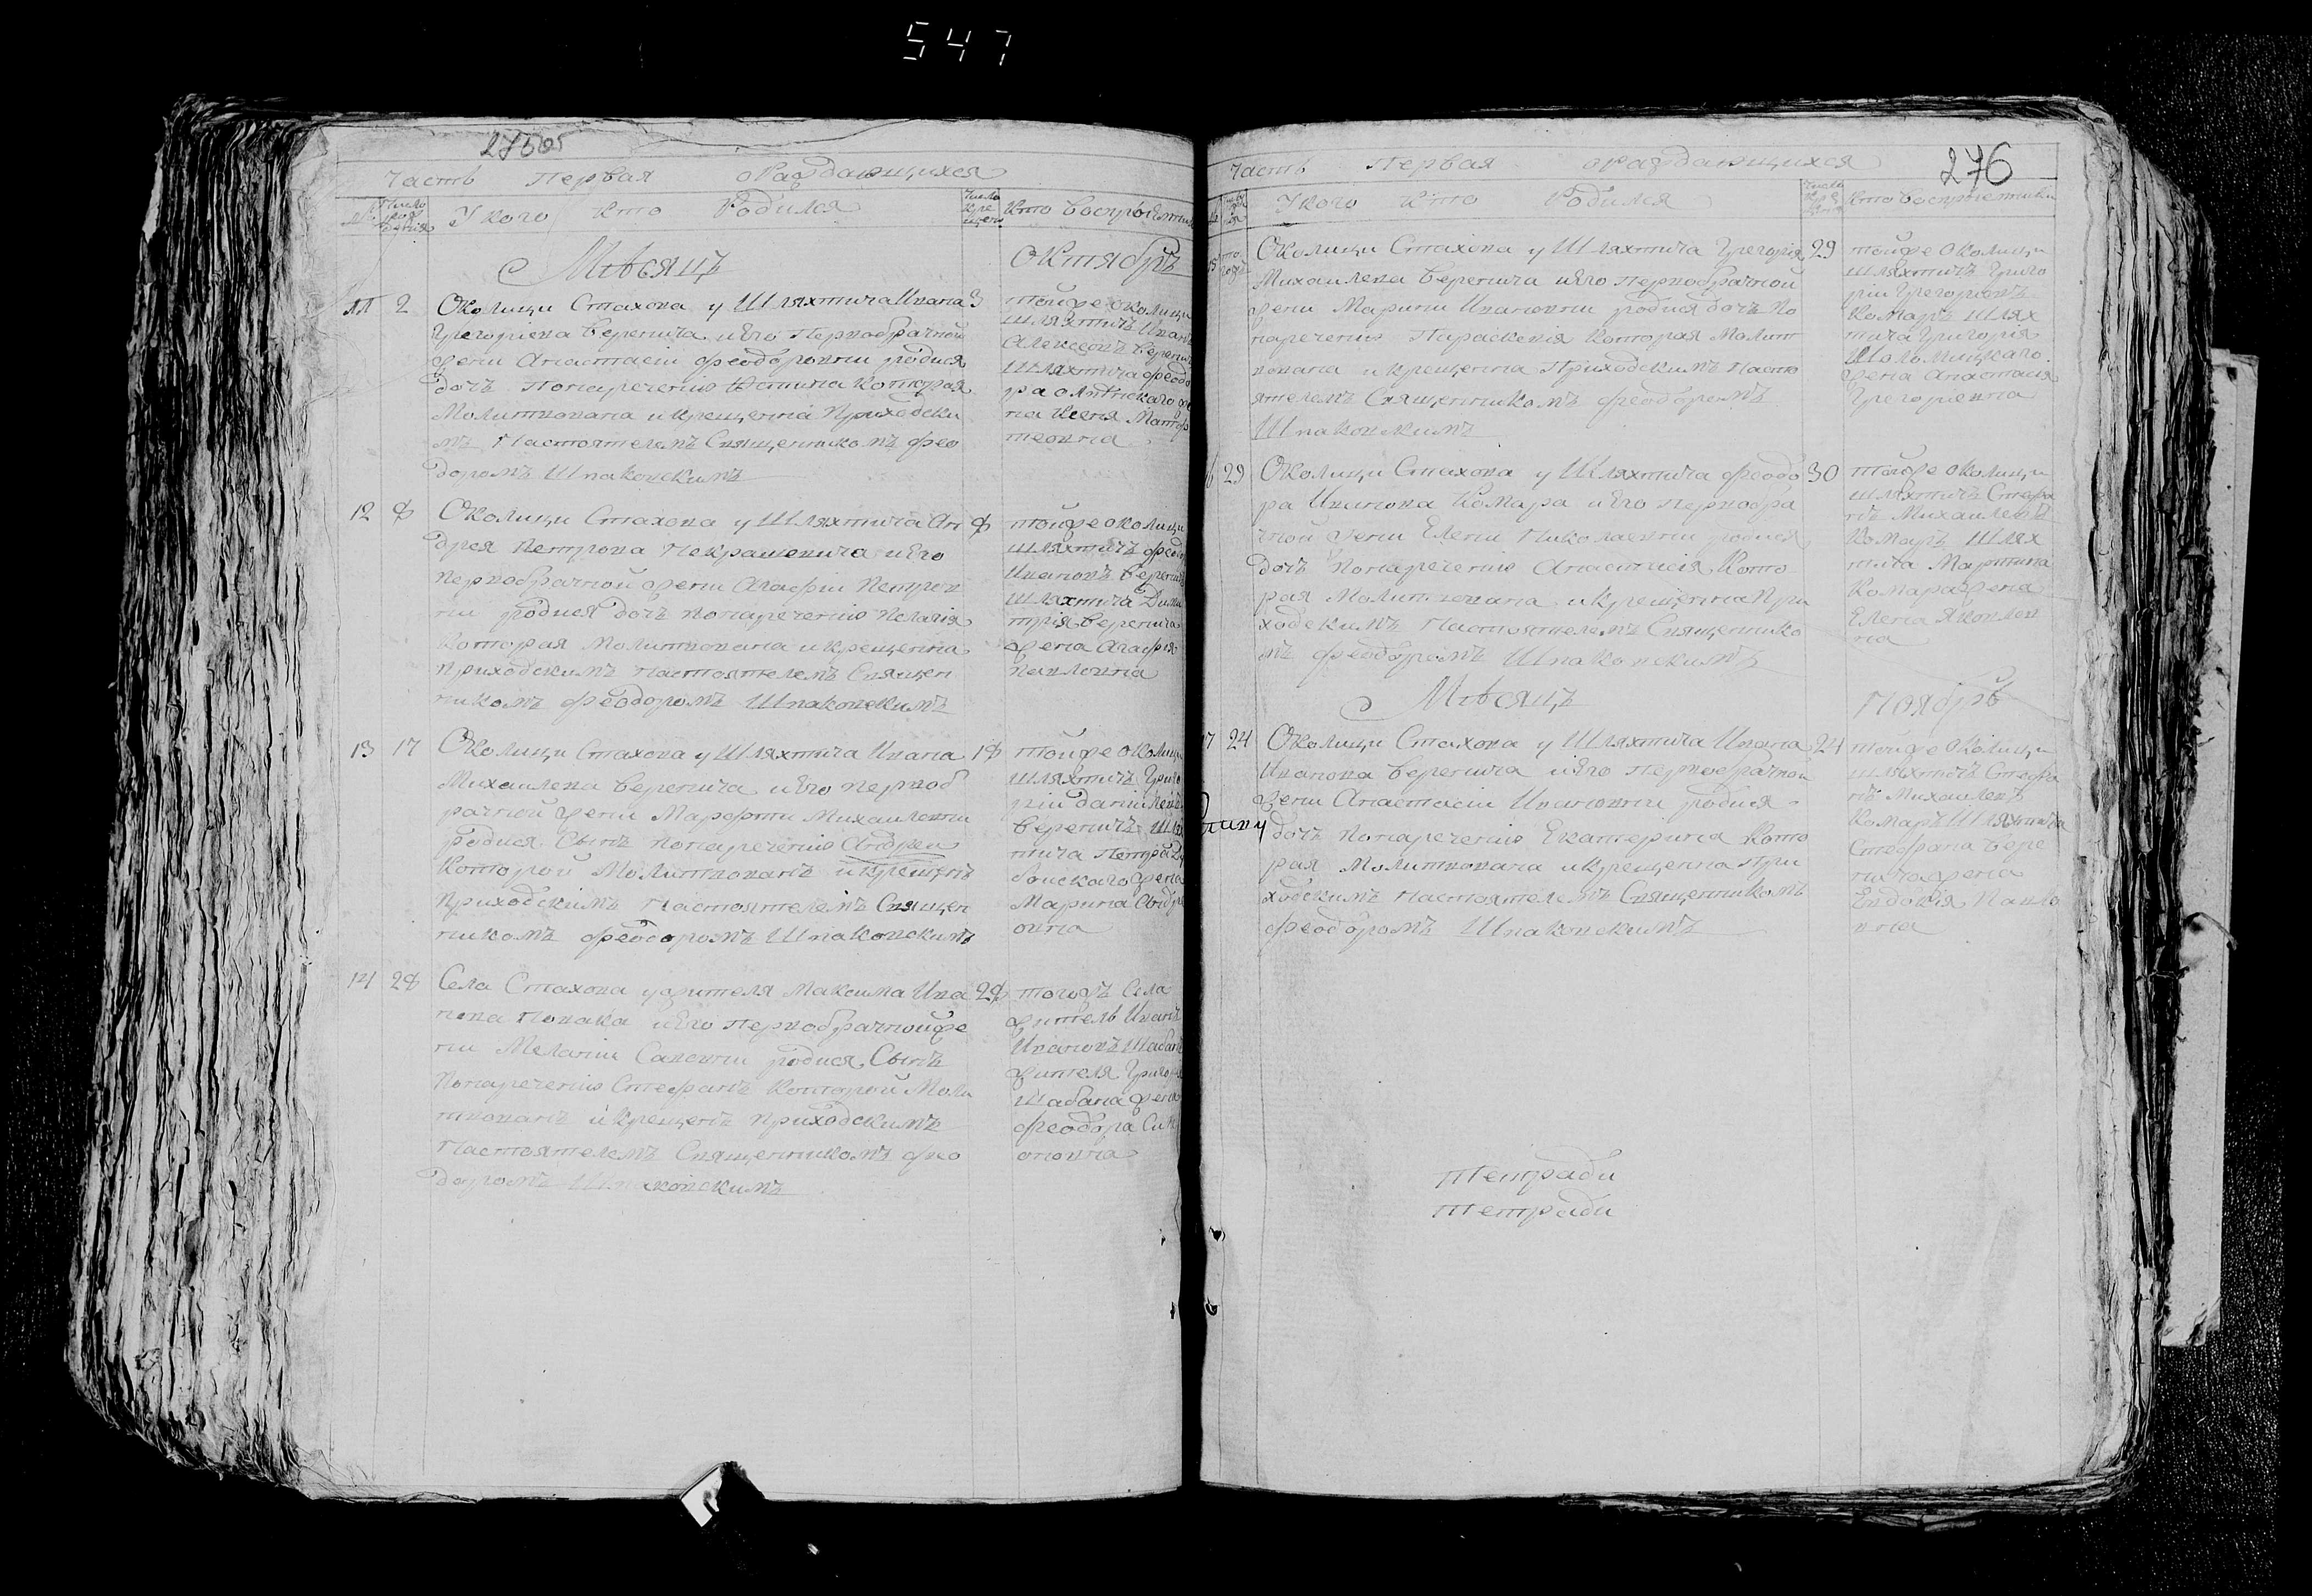 547
275об
Часть первая о Раждающихся
№ Число рождения У кого кто Родился Число крещения Кто восприемники
Мѣсяцъ Октябрь
11 2 Околицы Стахова у Шляхтича Ивана 3
Григоріева Веренича и его первобрачной
жены Анастасіи Феодоровны родися
дочь понареченію Устина которая
Молитвована и крещенна Приходски
мъ Настоятелемъ Священникомъ Фео
доромъ Шпаковскимъ
тойже околицы
Шляхтичъ Иванъ
Алексѣевъ Веренич
Шляхтича Феодо
ра
на Ксенія Матф
теовна
12 8 Околицы Стахова у Шляхтича Ан 8
дрея Петрова Некрашевича и его
первобрачной жены Агафіи Петров
ны родися дочь понареченію Пелагія
которая Молитвована и крещенна
приходскимъ настоятелемъ Священ
никомъ Феодоромъ Шпаковскимъ
тойже околицы
Шляхтичъ Феод
Ивановъ Веренич
Шляхтича Дими
трія Веренича
жена Агафія
Павловна
13 17 Околицы Стахова у Шляхтича Ивана 18
Михаилева Веренича и его первоб
рачной жены Марфы Михаиловны
родися Сынъ понареченію Андрей
Которой Молитвованъ и крещенъ
Приходскимъ Настоятелемъ Священ
никомъ Феодоромъ Шпаковскимъ
тойже околицы
Шляхтичъ Григо
рій Даниилевъ
Вереничъ Шля
тича Петра Ду
боискаго жена
Марина Андре
овна
14 28 Села Стахова у жителя Максима Ива 28
нова Новака и его первобрачной же
ны Меланіи Савовны родися Сынъ
Понареченію Стефанъ Которой Моли
твованъ и крещенъ приходскимъ
Настоятелемъ Священникомъ Фео
доромъ Шпаковскимъ
тогожъ Села
житель Иванъ
Ивановъ Шабан
жителя Григор
Шабана жена
Феодора Сим
оновна
276
Часть Первая о раждающихся
У кого кто Родился Число крещения Кто восприемники
15 Околицы Стахова у Шляхтича Грегорія 29
Михаилева Веренича и его первобрачной
жены Марины Ивановны родися дочь по
нареченію Параскевія которая Молит
вована и крещенна Приходскимъ Насто
ятелемъ Священникомъ Феодоромъ
Шпаковскимъ
тойже околицы
Шляхтичъ Григо
рій Грегориевъ
Комаръ Шлях
тича Григорія
Шоломицкаго
жена Анастасія
Григориевна
29 Околицы Стахова у Шляхтича Феодо 30
ра Иванова Комара и его первобра
чной жены Елены Николаевны родися
дочь понареченію Анастасія Кото
рая Молитвована и крещенна При
ходскимъ Настоятелемъ Священнико
мъ Феодоромъ Шпаковскимъ
тойже околицы
Шляхтичъ Стефа
нъ Михаилевъ
Комаръ Шлях
тича Мартина
Комара жена
Елена Яковлев
на
Мѣсяцъ Ноябрь
17 24 Околицы Стахова у Шляхтича Ивана 24
Иванова Веренича и его первобрачной
жены Анастасіи Ивановны родися
дочь понареченію Екатерина Кото
рая Молитвована и крещенна При
ходскимъ Настоятелемъ Священникомъ
Феодоромъ Шпаковскимъ
тойже околицы
Шляхтичъ Стефа
нъ Михаилевъ
Комаръ Шляхтича
Стефана Вере
нича жена
Евдокія Павло
вна
Тетради
Тетради